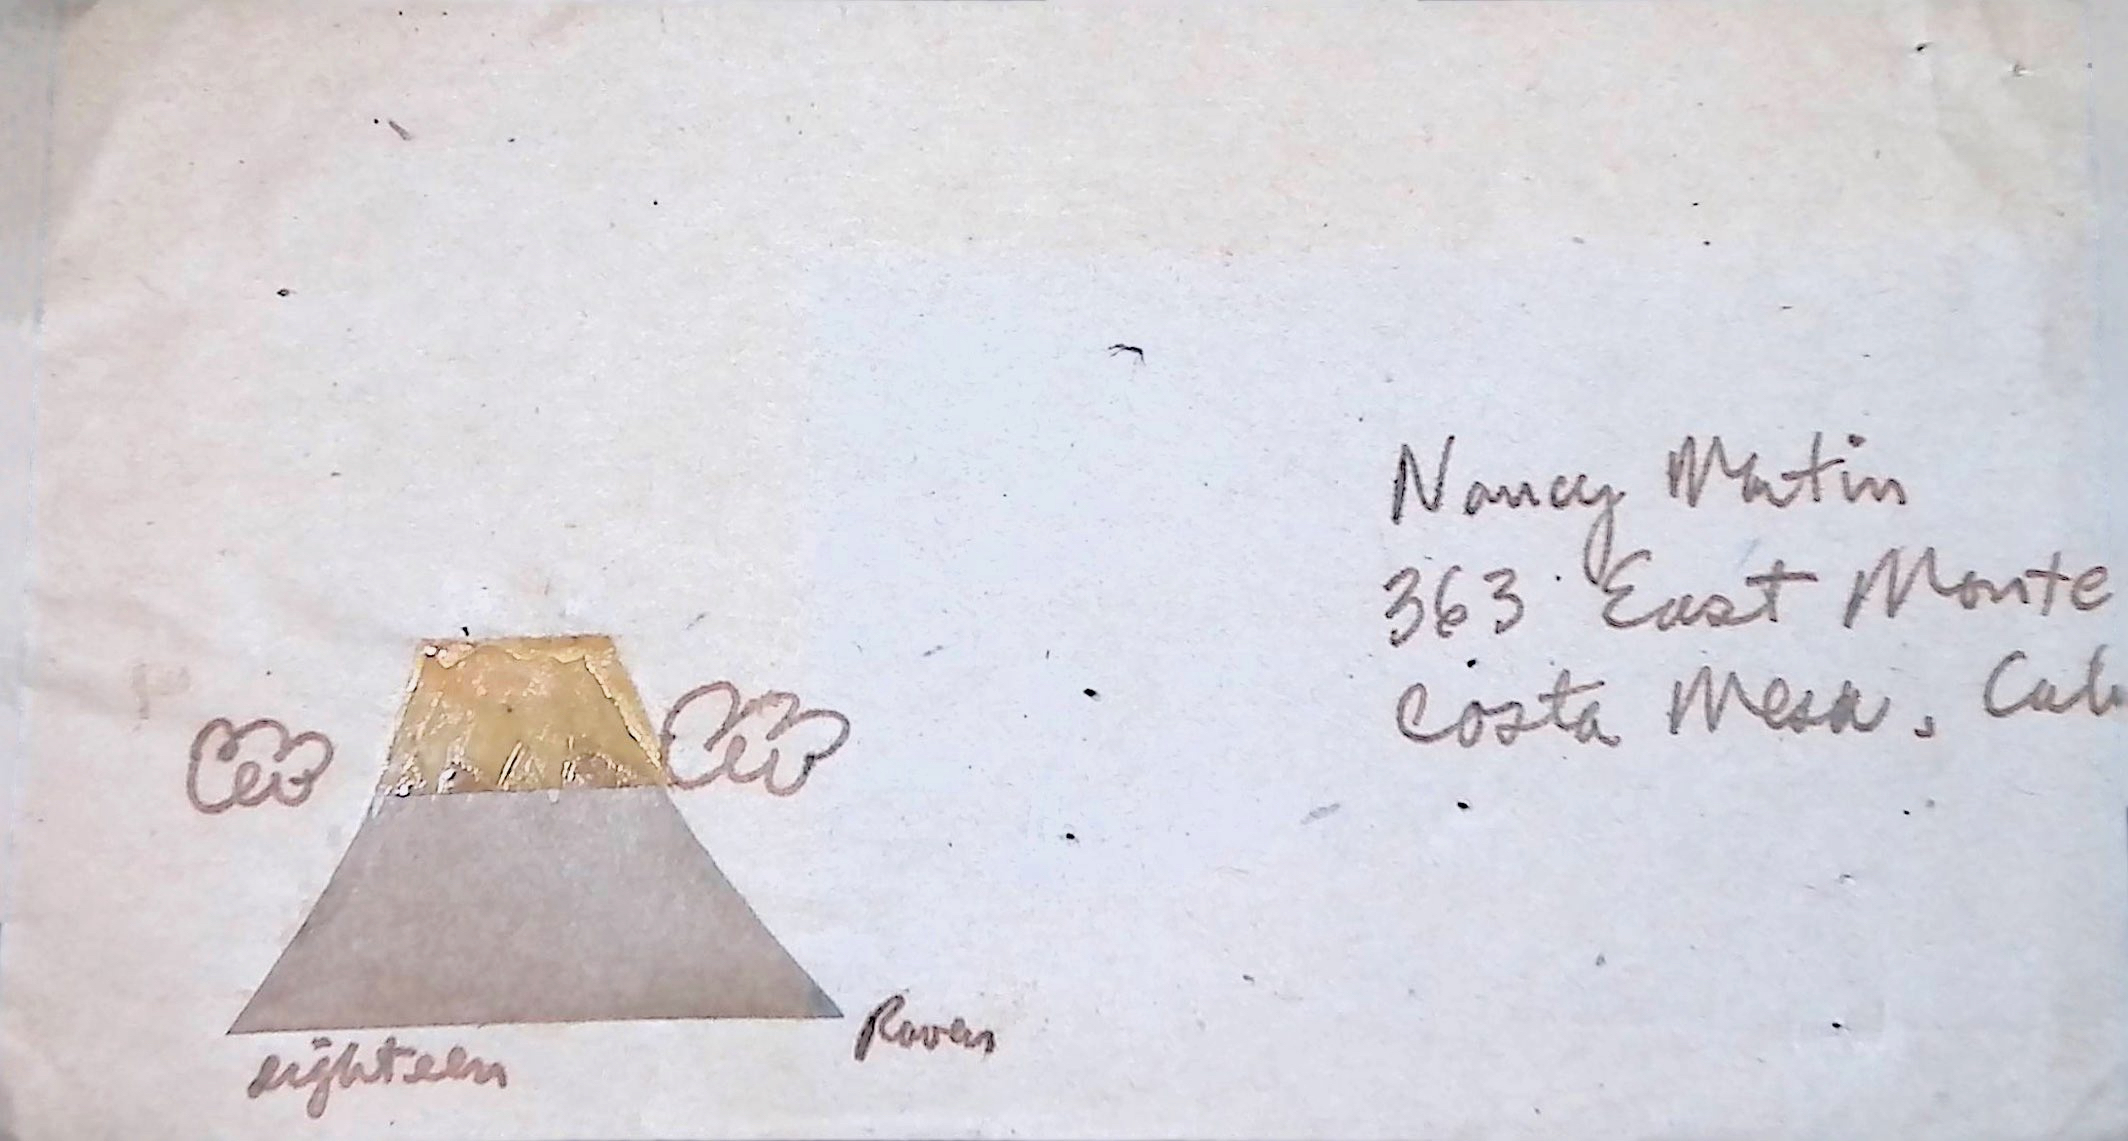 Nancy Martin
363 East Monte
Costa Mesa, Cal
eighteen
Raven